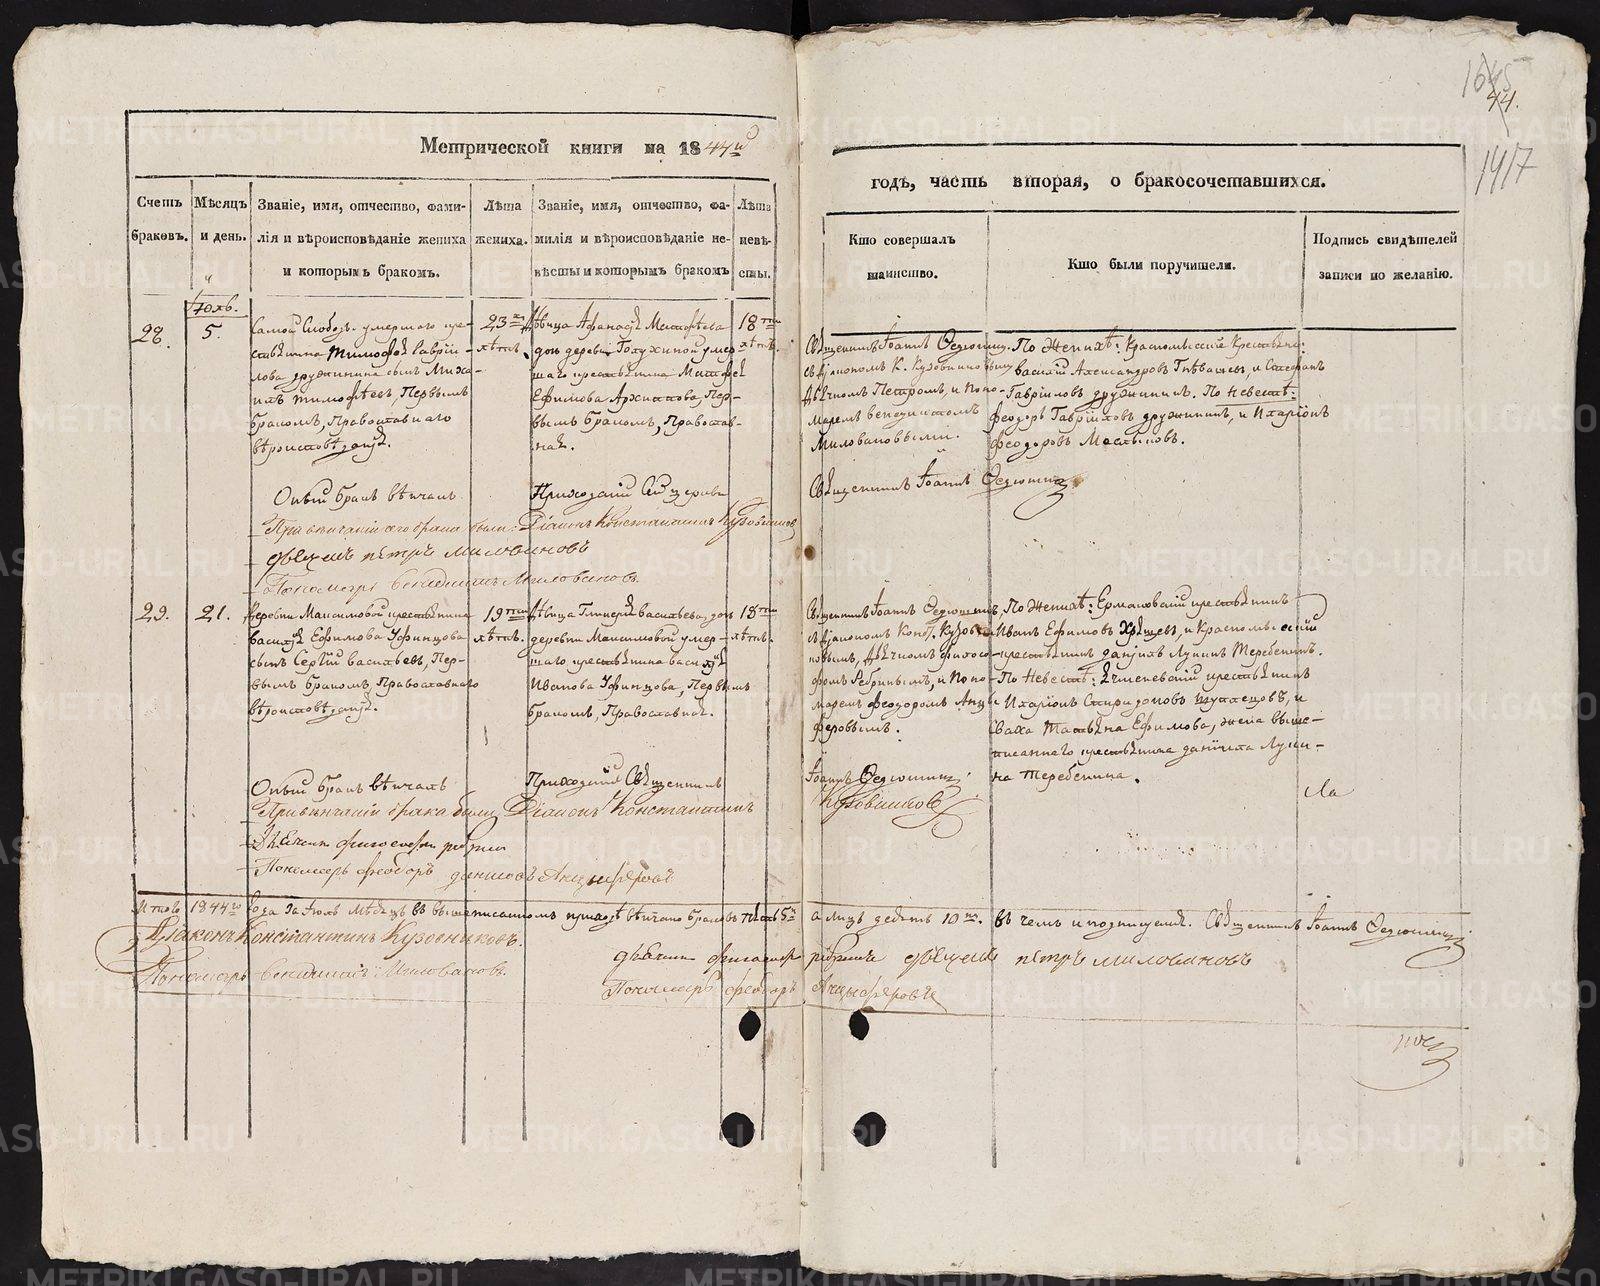 Метрической книги на 1844й
годъ, часть вторая, о бракосочетавшихся.
44.
1417
Счетъ браковъ.
Мѣсяцъ и день.
Званіе, имя, отчество, фами-
лія и вѣроисповѣданіе жениха
и которымъ бракомъ.
Лѣта
жениха.
Званіе, имя, отчество, фа-
милія и вѣроисповѣданіе не-
вѣсты и которымъ бракомъ
Лѣта
невѣ-
сты.
Кто совершалъ
таинство.
Кто были поручители.
Подпись свидѣтелей
записи по желанію.
Іюль.
28.
5.
Самой Слобод. умершаго кре-
стьянина Тимофея Гаврий-
лова дружинина сынъ Миха-
илъ тимофѣевъ, Первымъ
бракомъ, Православнаго
вѣроисповѣданія.
23
лѣтъ.
Дѣвица Афанасья Матфѣева
дочь деревни Голухиной умер-
шаго крестьянина Матфея
Ефимова Архипова, Пер-
вымъ бракомъ, Православ-
ная.
18ти
лѣтъ.
Священникъ Іоаннъ Федюшин.
съ діакономъ К. Кузовниковым
дьячкомъ Петромъ, и поно-
маремъ венедиктомъ
Миловановыми.
По Женихѣ: Красноклеской Крестьяне:
василій Александровъ Гнѣвашевъ, и Стефанъ
Гавриловъ дружининъ. По Невестѣ:
феодоръ Гавриловъ дружининъ, и Иларіонъ
феодоровъ Мосняковъ.
Оный бракъ вѣнчалъ
Приходскій сей церкви
Священникъ Іоаннъ Федюшинъ
При венчаніи сего брака были: Діаконъ Константинъ Кузовниковъ
дьячекъ петръ миловановъ
Пономарь Венедиктъ Миловановъ.
29.
21.
деревни Максимовой крестьянина
василья Ефимова Уфинцова
сынъ Сергій васильевъ, Пер-
вымъ бракомъ, Православнаго
вѣроисповѣданія.
19ти
лѣтъ.
Дѣвица Гликерья васильева, дочь
деревни Максимовой умер-
шаго крестьянина василья
Иванова Уфинцова, Первымъ
бракомъ, Православная.
18ти
лѣтъ.
Священникъ Іоаннъ Федюшинъ
съ діакономъ Конст. Кузов-
никовымъ, дьячкомъ филосо-
фомъ Ребриным, и поно-
маремъ феодоромъ Анцы-
феровымъ.
По Женихѣ: Ермаковскій крестьянинъ
Иванъ Ефимовъ Хрѣщевъ, и Красноклеской
крестьянинъ данилъ Лукинъ Теребенинъ.
По Невестѣ: Ячменевскій крестьянинъ
Иларіонъ Спиридоновъ шуплецовъ, и
Сваха Татьяна Ефимова, жена выше-
писаннаго крестьянина данила Луки-
на Теребенина.
Оный бракъ вѣнчалъ
Приходскій Священникъ
Іоаннъ Федюшинъ
При венчаніи брака были Діаконъ Константинъ
Кузовниковъ
Дьячекъ философъ ребринъ
Пономарь феодоръ данилов Анцыферовъ
Итого 1844го года за Іюль мѣсяцъ въ вышеписанномъ приходѣ вѣнчано браковъ пять 5ть а лицъ десять 10ть. въ чемъ и подпишемся. Священникъ Іоаннъ Федюшинъ
Діаконъ Константинъ Кузовниковъ.
дьячекъ философъ ребринъ дьячекъ петръ миловановъ
Пономарь Венедиктъ Миловановъ.
Пономарь феодоръ Анцыферовъ